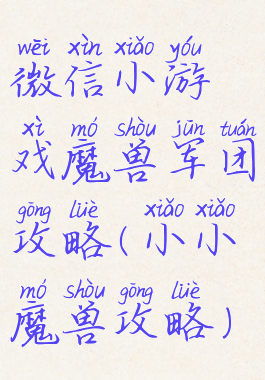 wēi xìn xiǎo yóu
微信小游
xì mó shòu jūn tuán
戏魔兽军团
gōng lüè xiǎo xiǎo
攻略(小小
mó shòu gōng lüè
魔兽攻略)